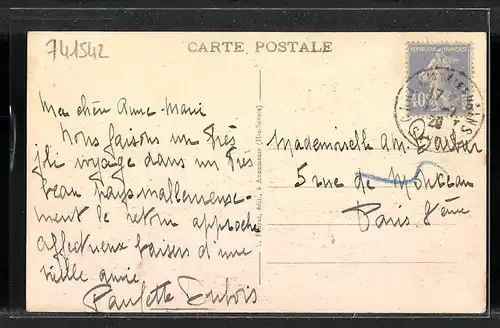 741542
CARTE POSTALE
REPUBLIQUE FRANÇAISE
40
17
28
Ma chère Anne-Marie
Nous faisons un très
joli voyage dans un très
beau pays malheureuse-
ment le retour approche
affectueux baisers d'une
vieille amie
Paulette Dubois
édit., à Annemasse (Hte-Savoie)
Mademoiselle AM. Barbier
5 rue de Monceau
Paris 8ème